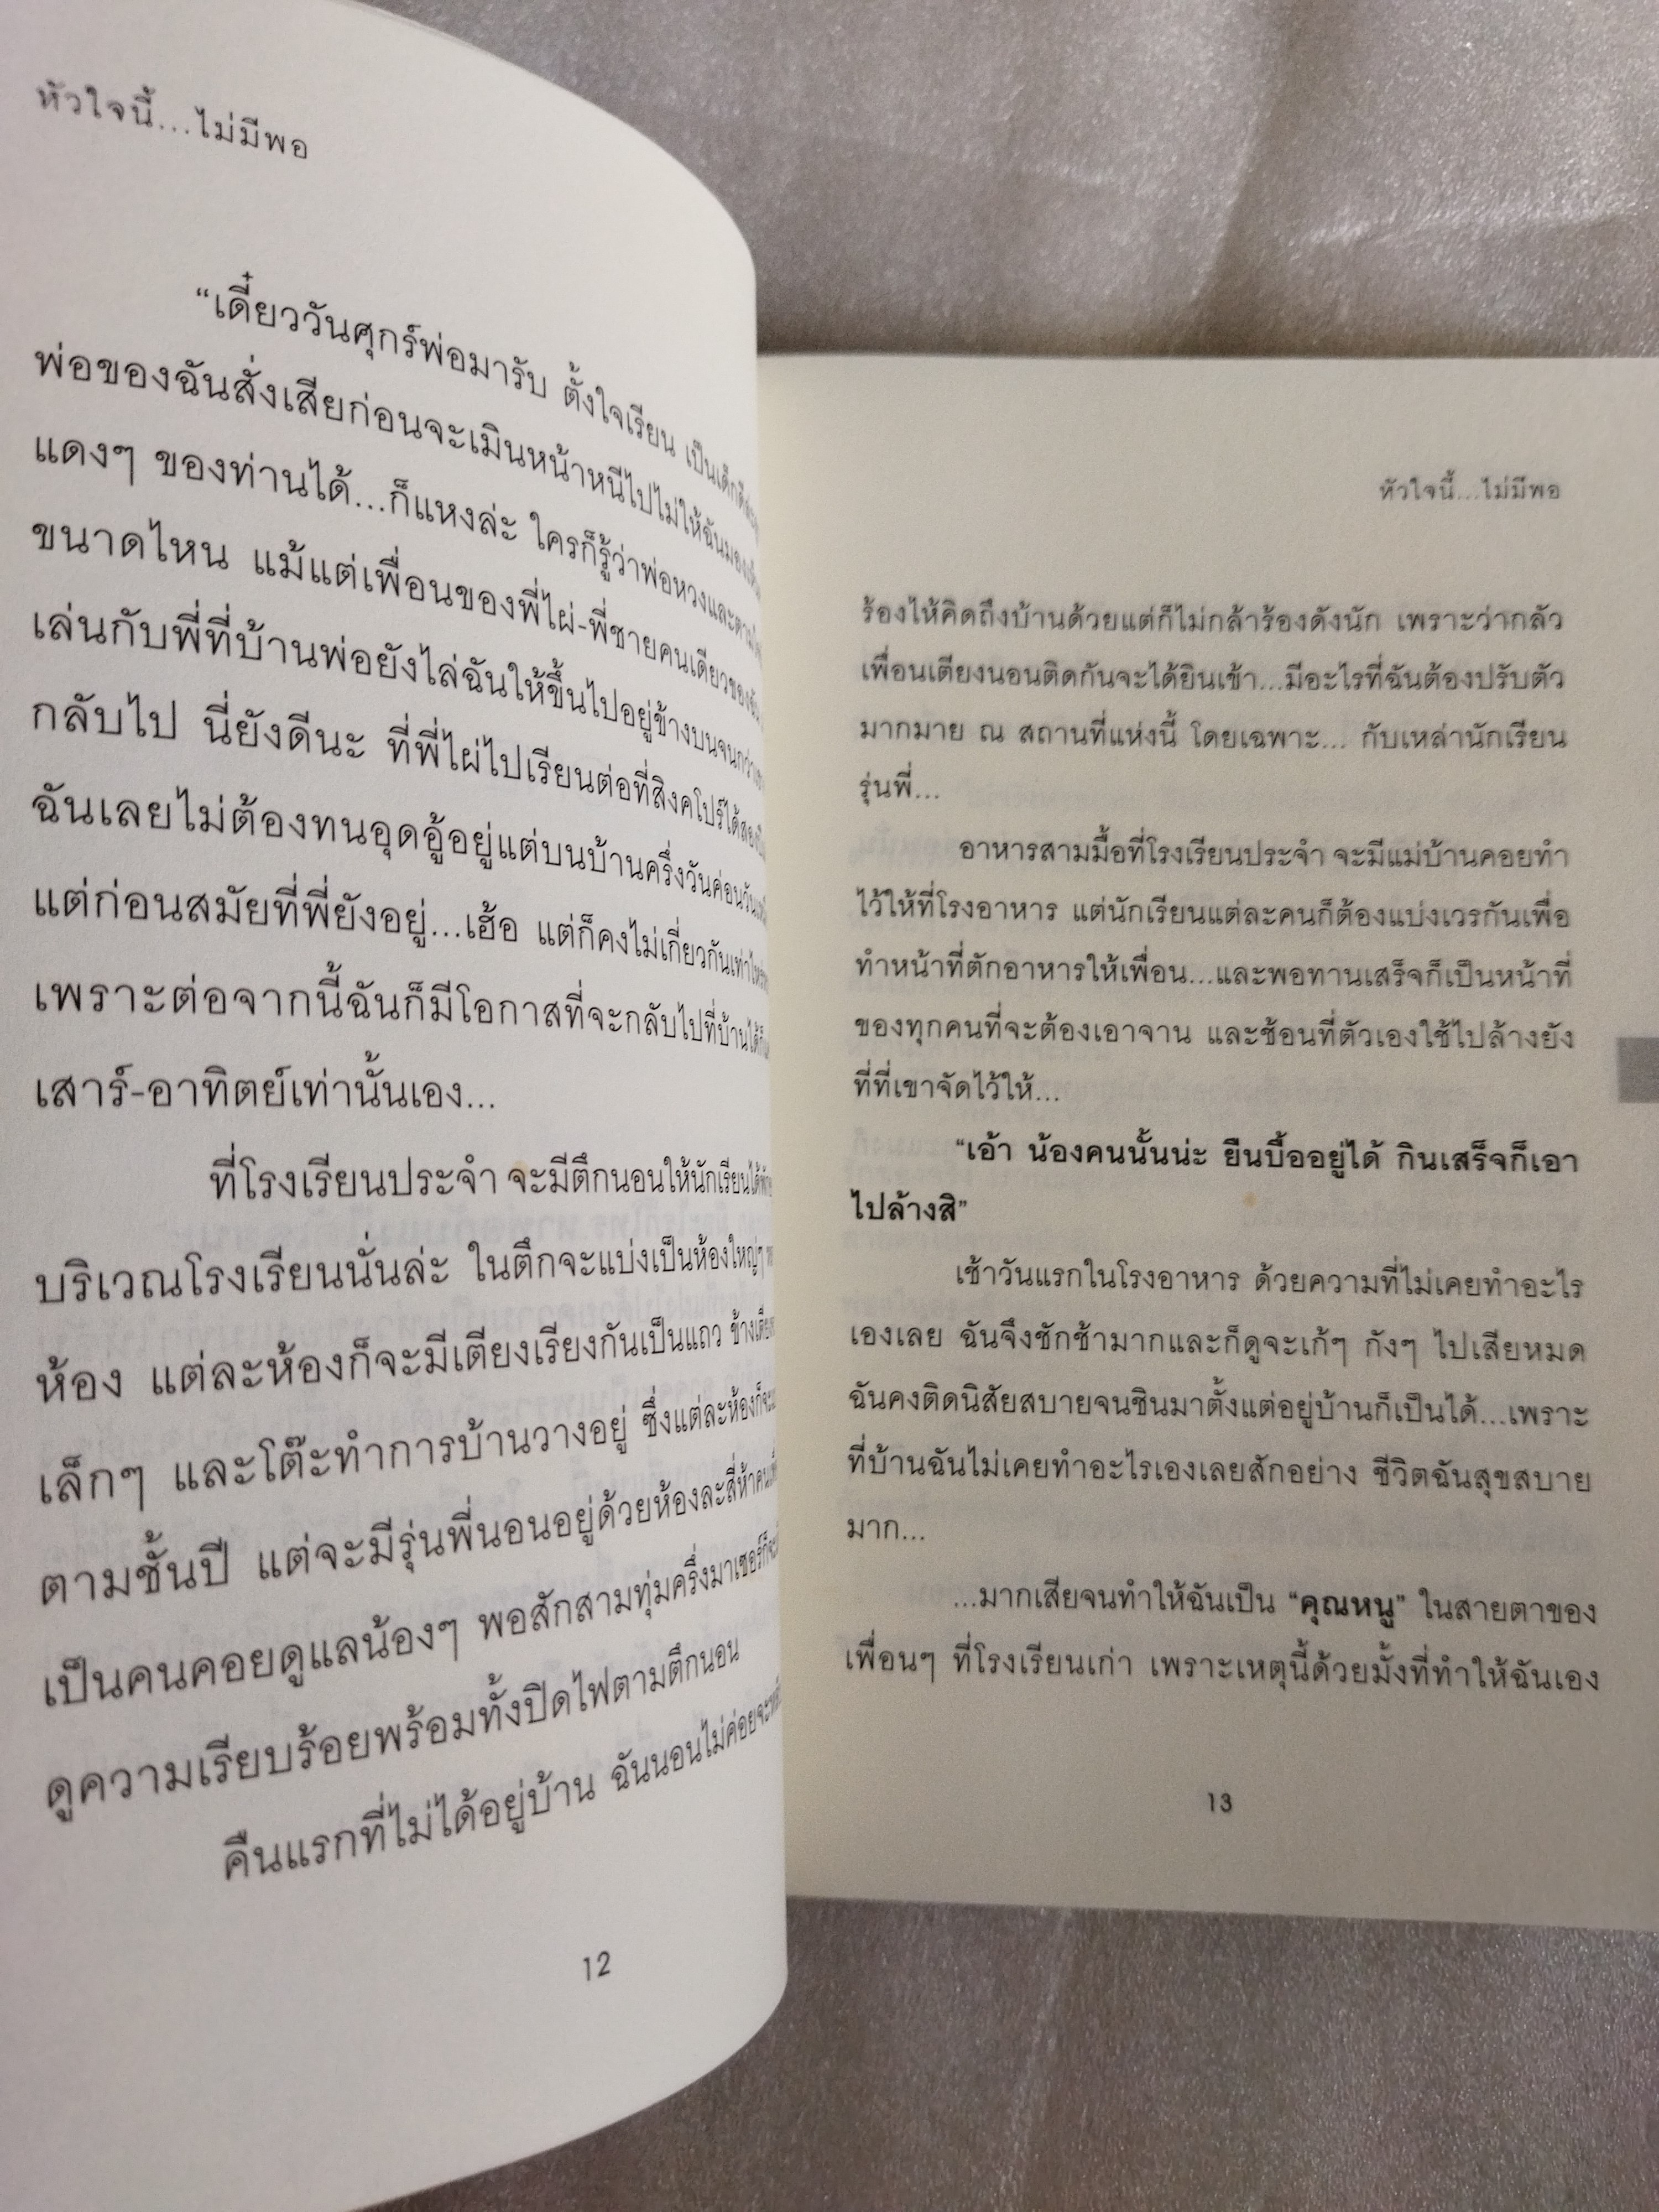 หัวใจนี้...ไม่มีพอ
“เดี๋ยววันศุกร์พ่อมารับ ตั้งใจเรียน
พ่อของฉันสั่งเสียก่อนจะเมินหน้าหนีไปไม่ให้ฉันมอง
แดงๆ ของท่านได้...ก็แหงล่ะ ใครก็รู้ว่าพ่อหวงและตามใจ
ขนาดไหน แม้แต่เพื่อนของพี่ไผ่-พี่ชายคนเดียวของฉัน
เล่นกับพี่ที่บ้านพ่อยังไล่ฉันให้ขึ้นไปอยู่ข้างบนจนกว่า
กลับไป นี่ยังดีนะ ที่พี่ไผ่ไปเรียนต่อที่สิงคโปร์ได้
ฉันเลยไม่ต้องทนอุดอู้อยู่แต่บนบ้านครึ่งวันค่อนวัน
แต่ก่อนสมัยที่พี่ยังอยู่...เฮ้อ แต่ก็คงไม่เกี่ยวกันเท่าไหร่
เพราะต่อจากนี้ฉันก็มีโอกาสที่จะกลับไปที่บ้านได้
เสาร์-อาทิตย์เท่านั้นเอง...
ที่โรงเรียนประจำ จะมีตึกนอนให้นักเรียนได้
บริเวณโรงเรียนนั่นล่ะ ในตึกจะแบ่งเป็นห้องใหญ่ๆ
ห้อง แต่ละห้องก็จะมีเตียงเรียงกันเป็นแถว ข้างเตียง
เล็กๆ และโต๊ะทำการบ้านวางอยู่ ซึ่งแต่ละห้องก็จะ
ตามชั้นปี แต่จะมีรุ่นพี่นอนอยู่ด้วยห้องละสี่ห้าคน
เป็นคนคอยดูแลน้องๆ พอสักสามทุ่มครึ่งมาเซอร์ก็จะ
ดูความเรียบร้อยพร้อมทั้งปิดไฟตามตึกนอน
คืนแรกที่ไม่ได้อยู่บ้าน ฉันนอนไม่ค่อยจะ
12
หัวใจนี้...ไม่มีพอ
ร้องไห้คิดถึงบ้านด้วยแต่ก็ไม่กล้าร้องดังนัก เพราะว่ากลัว
เพื่อนเตียงนอนติดกันจะได้ยินเข้า...มีอะไรที่ฉันต้องปรับตัว
มากมาย ณ สถานที่แห่งนี้ โดยเฉพาะ... กับเหล่านักเรียน
รุ่นพี่...
อาหารสามมื้อที่โรงเรียนประจำ จะมีแม่บ้านคอยทำ
ไว้ให้ที่โรงอาหาร แต่นักเรียนแต่ละคนก็ต้องแบ่งเวรกันเพื่อ
ทำหน้าที่ตักอาหารให้เพื่อน...และพอทานเสร็จก็เป็นหน้าที่
ของทุกคนที่จะต้องเอาจาน และช้อนที่ตัวเองใช้ไปล้างยัง
ที่ที่เขาจัดไว้ให้...
“เอ้า น้องคนนั้นน่ะ ยืนบื้ออยู่ได้ กินเสร็จก็เอา
ไปล้างสิ”
เช้าวันแรกในโรงอาหาร ด้วยความที่ไม่เคยทำอะไร
เองเลย ฉันจึงชักช้ามากและก็ดูจะเก้ๆ กังๆ ไปเสียหมด
ฉันคงติดนิสัยสบายจนชินมาตั้งแต่อยู่บ้านก็เป็นได้...เพราะ
ที่บ้านฉันไม่เคยทำอะไรเองเลยสักอย่าง ชีวิตฉันสุขสบาย
มาก...
...มากเสียจนทำให้ฉันเป็น “คุณหนู” ในสายตาของ
เพื่อนๆ ที่โรงเรียนเก่า เพราะเหตุนี้ด้วยมั้งที่ทำให้ฉันเอง
13